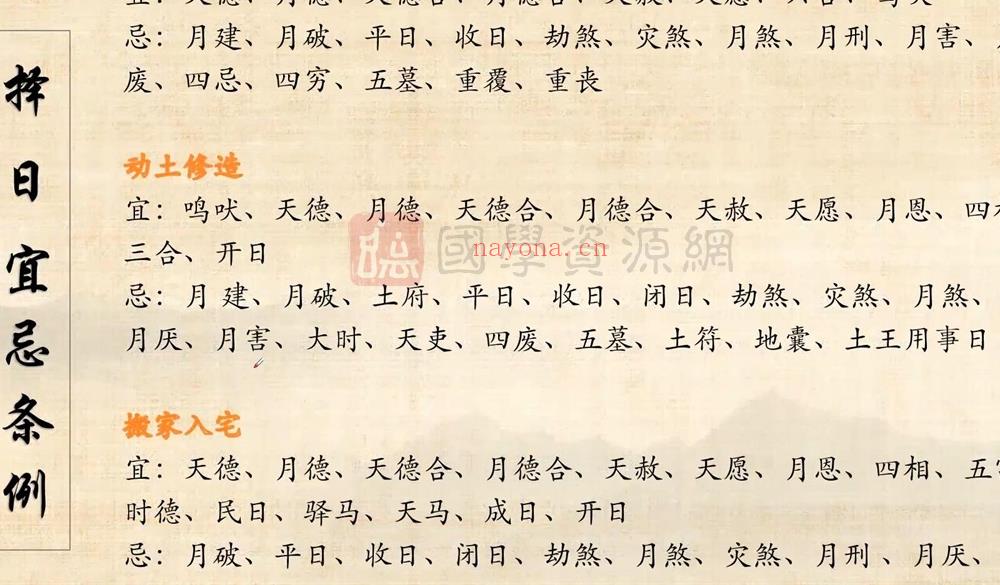 择日宜忌条例
宜：天德、月德、天德合、月德合、天赦、天愿、六合、
忌：月建、月破、平日、收日、劫煞、灾煞、月煞、月刑、月害、
废、四忌、四穷、五墓、重覆、重丧
动土修造
宜：鸣吠、天德、月德、天德合、月德合、天赦、天愿、月恩、四相
三合、开日
國學資源網
nayona.cn
忌：月 建、月破、土府、平日、收日、闭日、劫煞、灾煞、月煞、
月厌、月害、大时、天吏、四废、五墓、土符、地囊、土王用事日
搬家入宅
宜：天德、月德、天德合、月德合、天赦、天愿、月恩、四相、五
时德、民日、驿马、天马、成日、开日
忌：月破、平日、收日、闭日、劫煞、月煞、灾煞、月刑、月厌、